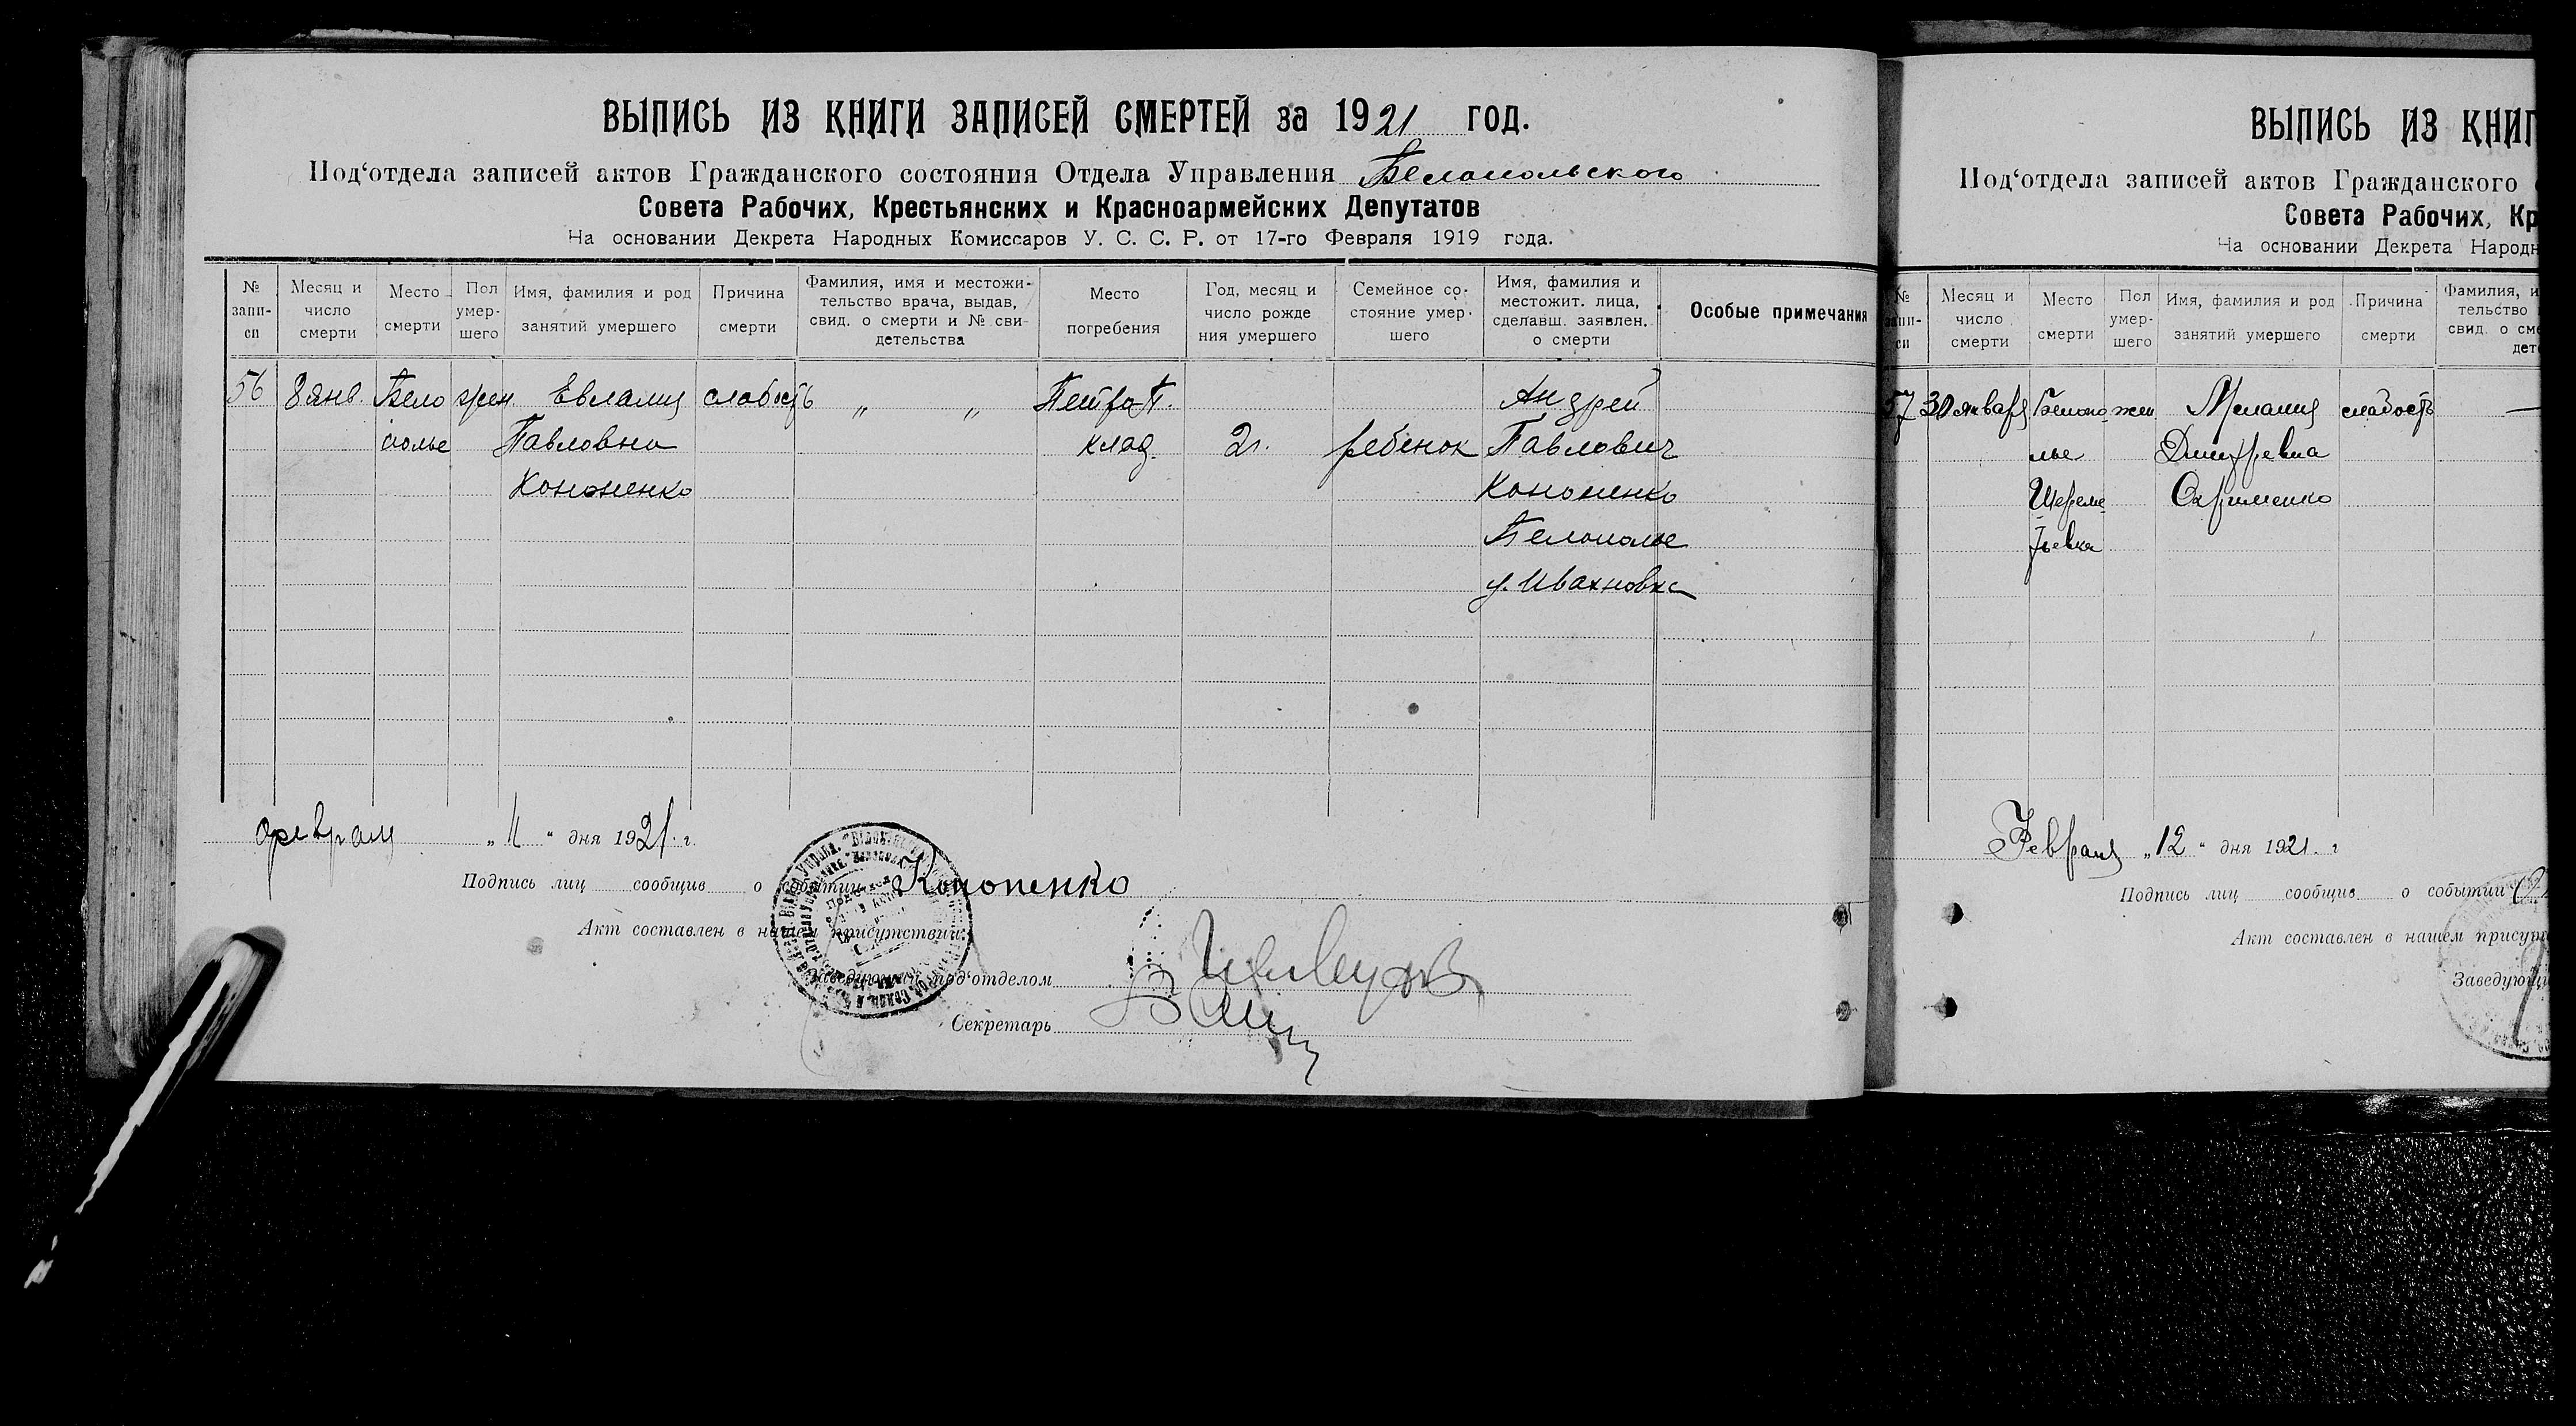 ВЫПИСЬ ИЗ КНИГИ ЗАПИСЕЙ СМЕРТЕЙ за 1921 год.
Под‘отдела записей актов Гражданского состояния Отдела Управления Белопольского
Совета Рабочих, Крестьянских и Красноармейских Депутатов
На основании Декрета Народных Комиссаров У. С. С. Р. от 17-го Февраля 1919 года.
№ запи-
си
Месяц и
число
смерти
Место
смерти
Пол
умер-
шего
Имя, фамилия и род
занятий умершего
Причина
смерти
Фамилия, имя и местожи-
тельство врача, выдав,
свид. о смерти и № сви-
детельства
Место
погребения
Год, месяц и
число рожде
ния умершего
Семейное со-
стояние умер-
шего
Имя, фамилия и
местожит. лица,
сделавш. заявлен.
о смерти
Особые примечания
56 8 янв. Бело жен. Евлампия слабость „ „ Петро-П. Андрей
полье Павловна клад. 2г. ребенок Павлович
Кононенко Кононенко
Белополье
у. Ивановка
февраля „11“ дня 1921 г.
Подпись лиц сообщив о событии Кононенко
Акт составлен в нашем присутствии:
Заведующий под‘отделом
Секретарь
ВЫПИСЬ ИЗ КНИГ
Под‘отдела записей актов Гражданского
Совета Рабочих, Кр
На основании Декрета Народн
№ запи-
си
Месяц и
число
смерти
Место
смерти
Пол
умер-
шего
Имя, фамилия и род
занятий умершего
Причина
смерти
Фамилия, и
тельство
свид. о сме
дете
57 30 января Белопо жен Мелания слабость —
лье Дмитревна
Шереме
тьевка
Февраля „12“ дня 1921 г
Подпись лиц сообщив о событии
Акт составлен в нашем присут
Заведующи